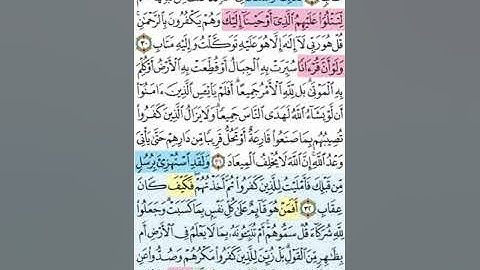 لِّتَتْلُوَا۟ عَلَيْهِمُ ٱلَّذِىٓ أَوْحَيْنَآ إِلَيْكَ وَهُمْ يَكْفُرُونَ بِٱلرَّحْمَٰنِ
قُلْ هُوَ رَبِّى لَآ إِلَٰهَ إِلَّا هُوَ عَلَيْهِ تَوَكَّلْتُ وَإِلَيْهِ مَتَابِ ٣٠
وَلَوْ أَنَّ قُرْءَانًا سُيِّرَتْ بِهِ ٱلْجِبَالُ أَوْ قُطِّعَتْ بِهِ ٱلْأَرْضُ أَوْ كُلِّمَ
بِهِ ٱلْمَوْتَىٰ بَل لِّلَّهِ ٱلْأَمْرُ جَمِيعًا أَفَلَمْ يَا۟يْـَٔسِ ٱلَّذِينَ ءَامَنُوٓا۟
أَن لَّوْ يَشَآءُ ٱللَّهُ لَهَدَى ٱلنَّاسَ جَمِيعًا وَلَا يَزَالُ ٱلَّذِينَ كَفَرُوا۟
تُصِيبُهُم بِمَا صَنَعُوا۟ قَارِعَةٌ أَوْ تَحُلُّ قَرِيبًا مِّن دَارِهِمْ حَتَّىٰ يَأْتِىَ
وَعْدُ ٱللَّهِ إِنَّ ٱللَّهَ لَا يُخْلِفُ ٱلْمِيعَادَ ٣١ وَلَقَدِ ٱسْتُهْزِئَ بِرُسُلٍ
مِّن قَبْلِكَ فَأَمْلَيْتُ لِلَّذِينَ كَفَرُوا۟ ثُمَّ أَخَذْتُهُمْ فَكَيْفَ كَانَ
عِقَابِ ٣٢ أَفَمَنْ هُوَ قَآئِمٌ عَلَىٰ كُلِّ نَفْسٍۭ بِمَا كَسَبَتْ وَجَعَلُوا۟
لِلَّهِ شُرَكَآءَ قُلْ سَمُّوهُمْ أَمْ تُنَبِّـُٔونَهُۥ بِمَا لَا يَعْلَمُ فِى ٱلْأَرْضِ أَم
بِظَٰهِرٍ مِّنَ ٱلْقَوْلِ بَلْ زُيِّنَ لِلَّذِينَ كَفَرُوا۟ مَكْرُهُمْ وَصُدُّوا۟ عَنِ